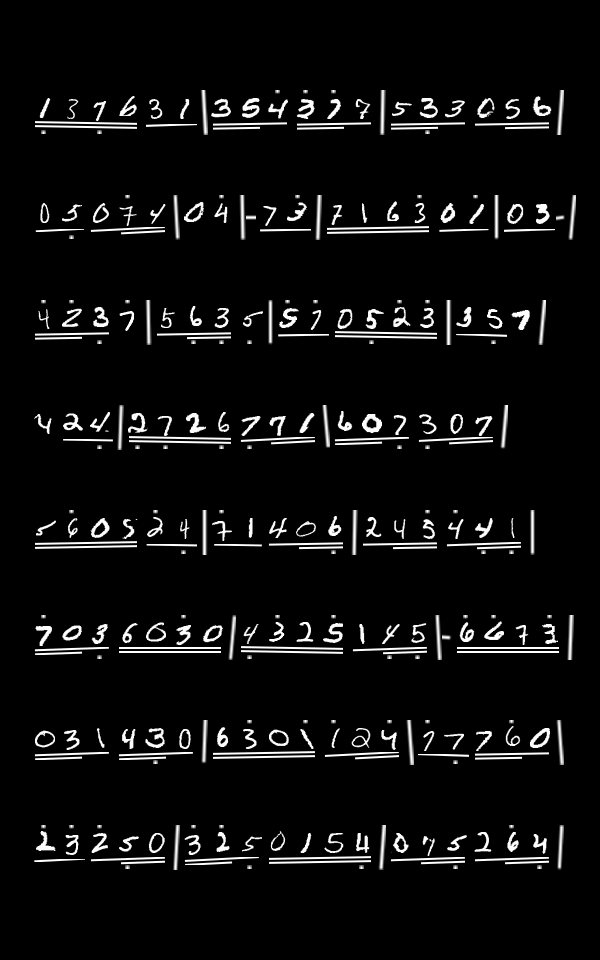 137631|354327|533056|
05074|04|-73|716301|03-|
4237|5635|57|0523|357|
424|2726771|607307|
560524|71406|244441|
7036030|4325145|-6673|
031430|6301124|77760|
23250|3250154|075264|